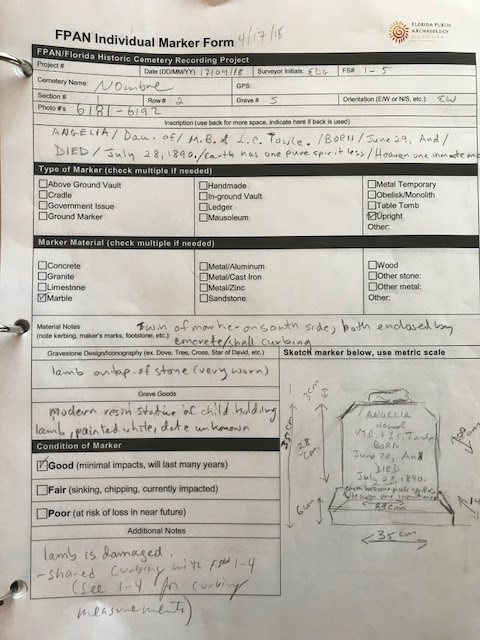 FPAN Individual Marker Form 4/17/18
FLORIDA PUBLIC
ARCHAEOLOGY
NETWORK
FPAN/Florida Historic Cemetery Recording Project
Project # Date (DD/MM/YY) 17/04/18 Surveyor Initials: EDG FS# 1-5
Cemetery Name: Nombre GPS:
Section # 1 Row # 2 Grave # 5 Orientation (E/W or N/S, etc.) EW
Photo #'s 6181-6192
Inscription (use back for more space, indicate here if back is used)
ANGELIA/ Dau. of/ M.B. & L.C. Towle. /BORN/ June 29, And/
DIED/ July 28, 1890./ Earth has one pure spirit less/ Heaven one inmate mo
Type of Marker (check multiple if needed)
Above Ground Vault Handmade Metal Temporary
Cradle In-ground Vault Obelisk/Monolith
Government Issue Ledger Table Tomb
Ground Marker Mausoleum Upright
Other:
Marker Material (check multiple if needed)
Concrete Metal/Aluminum Wood
Granite Metal/Cast Iron Other stone:
Limestone Metal/Zinc Other metal:
Marble Sandstone Other:
Material Notes Twin of marker on south side, both enclosed by
(note kerbing, maker's marks, footstone, etc.) concrete/shell curbing
Gravestone Design/Iconography (ex. Dove, Tree, Cross, Star of David, etc.) Sketch marker below, use metric scale
lamb on top of stone (very worn)
Grave Goods
modern resin statue of child holding
lamb, painted white, date unknown
Condition of Marker
Good (minimal impacts, will last many years)
Fair (sinking, chipping, currently impacted)
Poor (at risk of loss in near future)
Additional Notes
lamb is damaged.
- shared curbing with FS# 1-4
(see 1-4 for curbing
measurements)
3cm
35cm
28
cm
6cm
ANGELIA
dau of
M.B. & L.C. Towle
BORN
June 29, And
DIED
July 28, 1890.
29cm
35cm
14